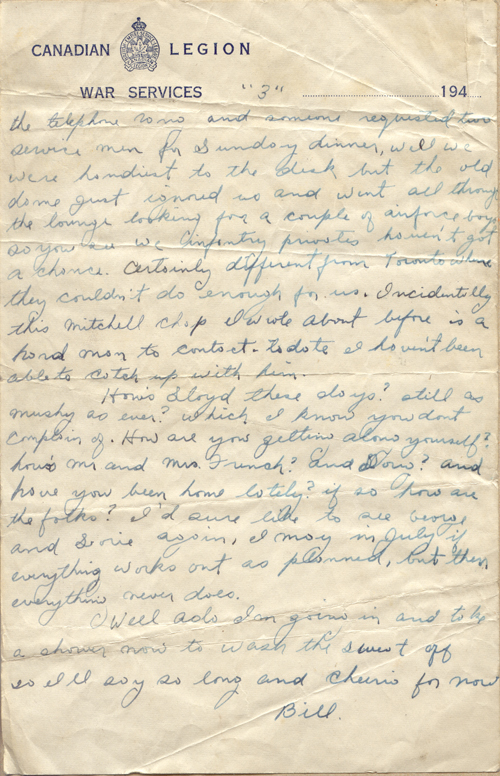 CANADIAN LEGION
WAR SERVICES "3" 194
the telephone rang and someone requested two
service men for Sunday dinner, well we
were handiest to the desk but the old
dame just ignored us and went all through
the lounge looking for a couple of airforce boys
so you see we infantry privates haven't got
a chance. Certainly different from Toronto where
they couldn't do enough for us. Incidentally
this Mitchell chap I wrote about before is a
hard man to contact. To date I haven't been
able to catch up with him.
How's Lloyd these days? still as
mushy as ever? which I know you dont
complain of. How are you getting along yourself?
how's Mr and Mrs. and and
have you been home lately? if so how are
the folks? I'd sure like to see George
and again, I may in July if
everything works out as planned, but then
everything never does.
Well I'm going in and take
a shower now to wash the sweat off
so I'll say so long and cheerio for now
Bill.